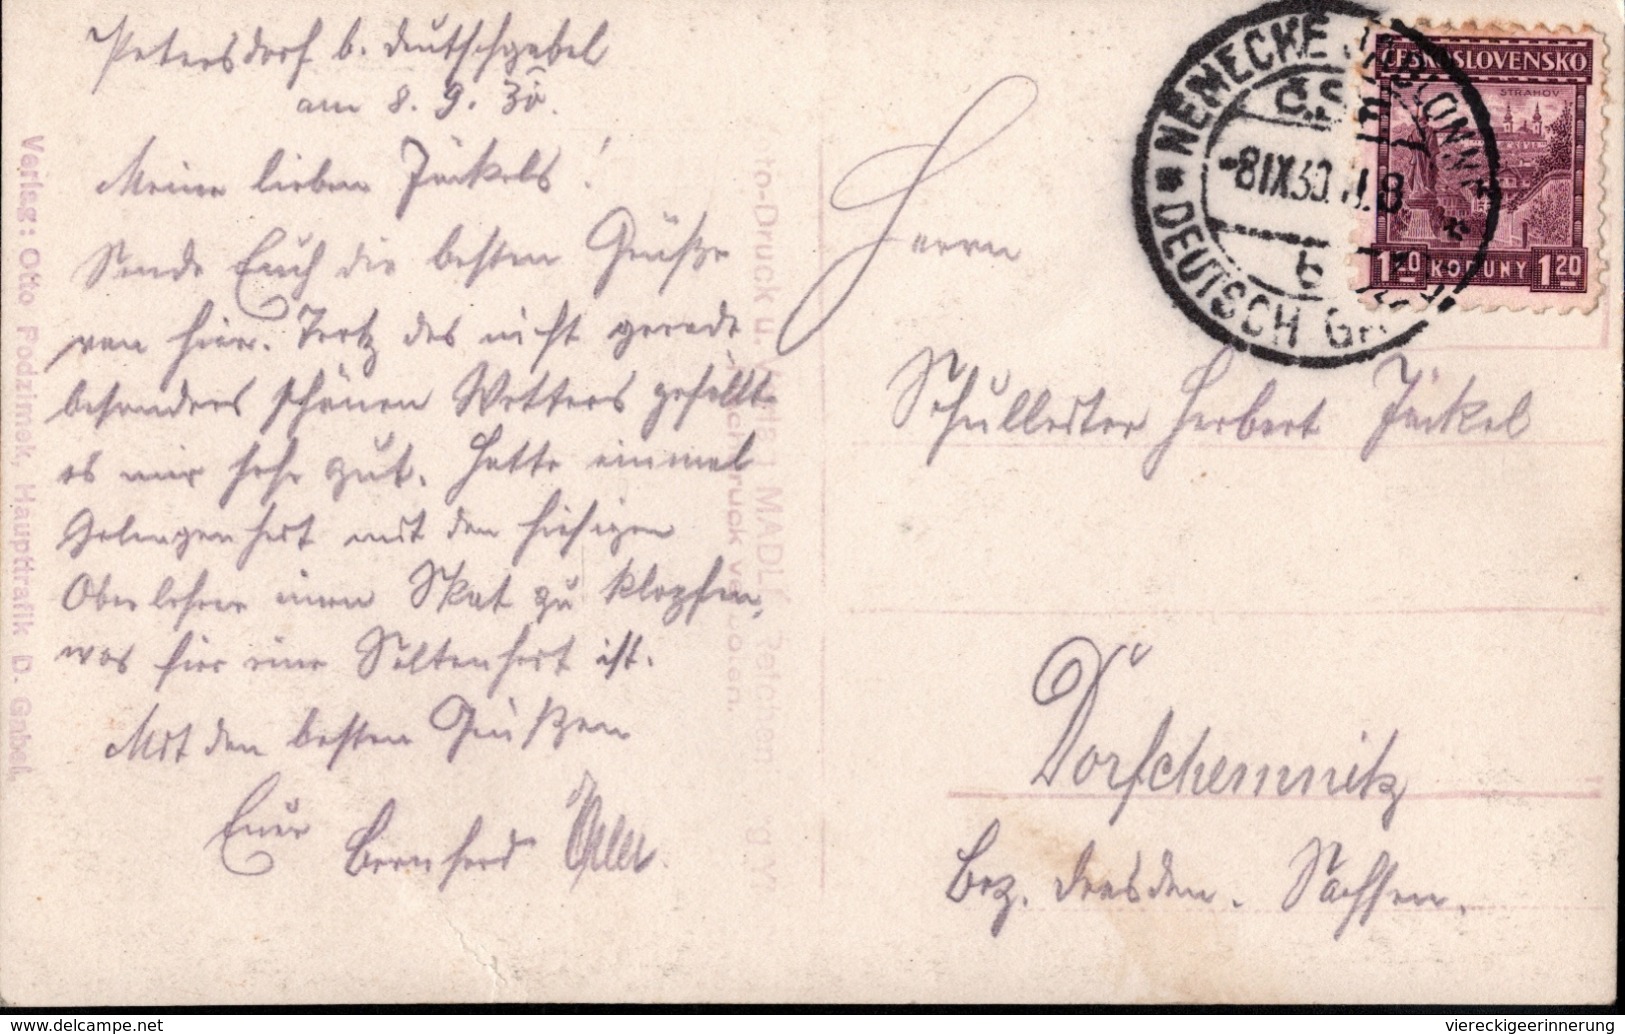 Petersdorf b. Deutschgabel
am 8. 9. 30.
Meine lieben Jäckels!
Sende Euch die besten Grüße
von hier. Trotz des nicht gerade
besonders schönen Wetters gefällt
es mir sehr gut. Hatte einmal
Gelegenheit mit den hiesigen
Oberlehrer einen Skat zu klopfen,
was hier eine Seltenheit ist.
Mit den besten Grüßen
Euer
Bernhard
Herrn
Schulleiter Herbert Jäckel
Dorfchemnitz
Bez. Dresden. Sachsen.
NĚMECKÉ JABLONNÉ
Č.S.
-8.IX.30.
DEUTSCH GA
ČESKOSLOVENSKO
STRAHOV
1.20 KORUNY 1.20
Verlag: Otto Podzimek, Haupttrafik D. Gabel.
oto-Druck u. Verlag MADLÉ, Reichen
druck verboten.
viereckigeerinnerung
www.delcampe.net